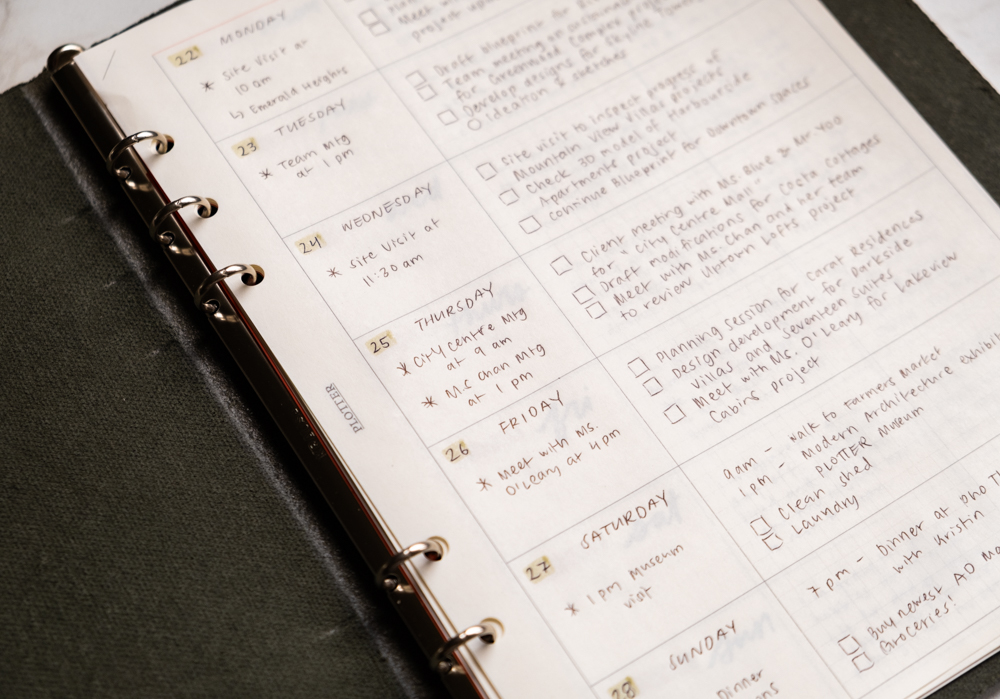 MONDAY
22
* Site Visit at
10 am
↳ Emerald Heights
Meet with
project
TUESDAY
23
* Team Mtg
at 1 pm
☐ Draft blueprint for
☐ Team meeting on
for Greenwood Complex
☐ Develop designs for Skyline
○ Ideation & sketches
WEDNESDAY
24
* Site Visit at
11:30 am
☐ Site visit to inspect progress of
Mountain View Villas projects
☐ Check 3D model of Harbourside
Apartments project
☐ continue Blueprint for Downtown Spaces
THURSDAY
25
* City Centre Mtg
at 9 am
* Ms Chan Mtg
at 1 pm
☐ Client meeting with Ms. Blue & Mr. Yoo
for City Centre Mall
☐ Draft modifications for Costa Cottages
☐ Meet with Ms. Chan and her team
to review Uptown Lofts project
FRIDAY
26
* Meet with Ms.
O'Leary at 4 pm
☐ Planning session for Carat Residences
☐ Design development for Parkside
Villas and Seventeen Suites
☐ Meet with Ms. O'Leary for Lakeview
Cabins project
SATURDAY
27
* 1 pm Museum
visit
9am - Walk to Farmers Market
1 pm - Modern Architecture
PLOTTER Museum
☐ Clean shed
☐ Laundry
SUNDAY
28
Dinner
7 pm - Dinner at Pho
with Kristin
☐ Buy newest AD
☐ Groceries!
PLOTTER